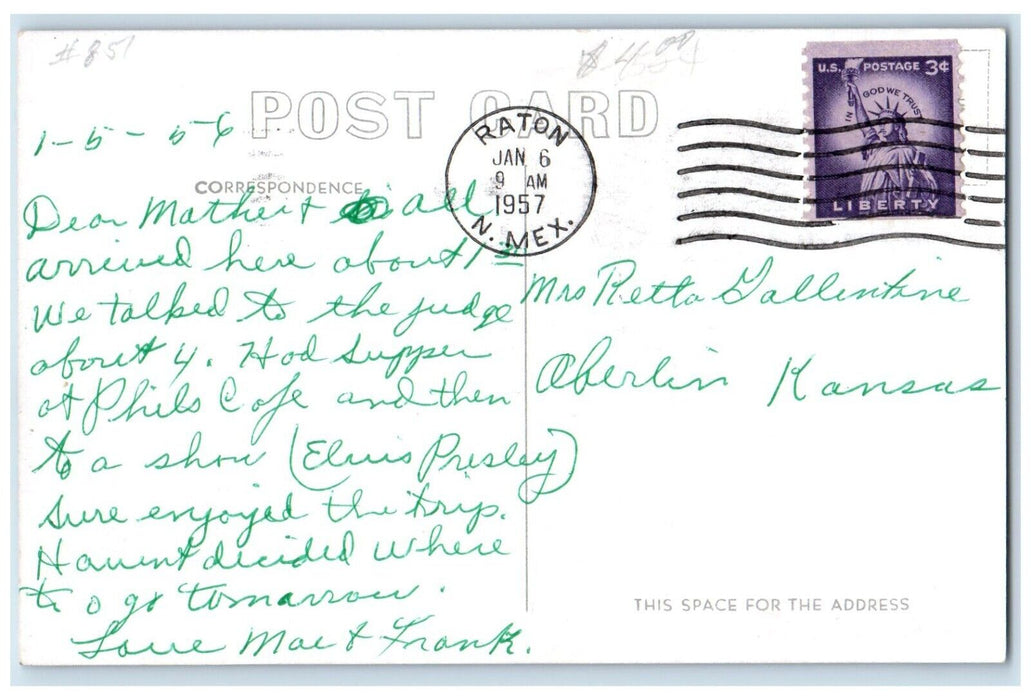 #851
$4.00
POST CARD
U.S. POSTAGE 3¢
IN GOD WE TRUST
LIBERTY
RATON
JAN 6
9 AM
1957
N. MEX.
1-5-56
CORRESPONDENCE
Dear Mother & all
arrived here about 1 30
We talked to the judge
about 4. Had supper
at Phils Cafe and then
to a show (Elvis Presley)
Sure enjoyed the trip.
Havent decided where
to go tomarrow.
Love Mae & Frank.
Mrs Retta Gallentine
Oberlin Kansas
THIS SPACE FOR THE ADDRESS